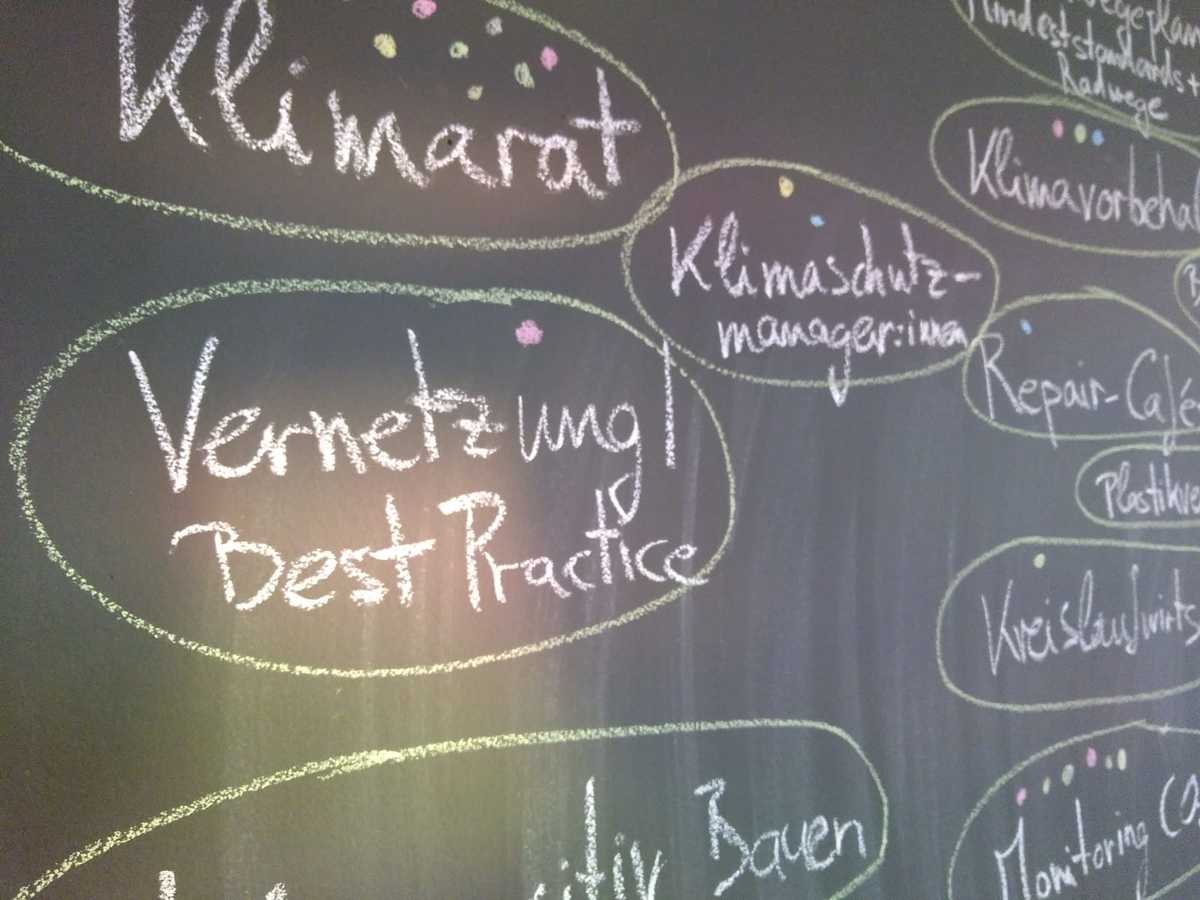 Klimarat
Mindeststandards +
Radwege
Klimavorbehal
Klimaschutz-
manager:innen
Vernetzung/
Best Practice
Repair-Café
Plastikv
Kreislaufwirts
Bauen
Monitoring CO